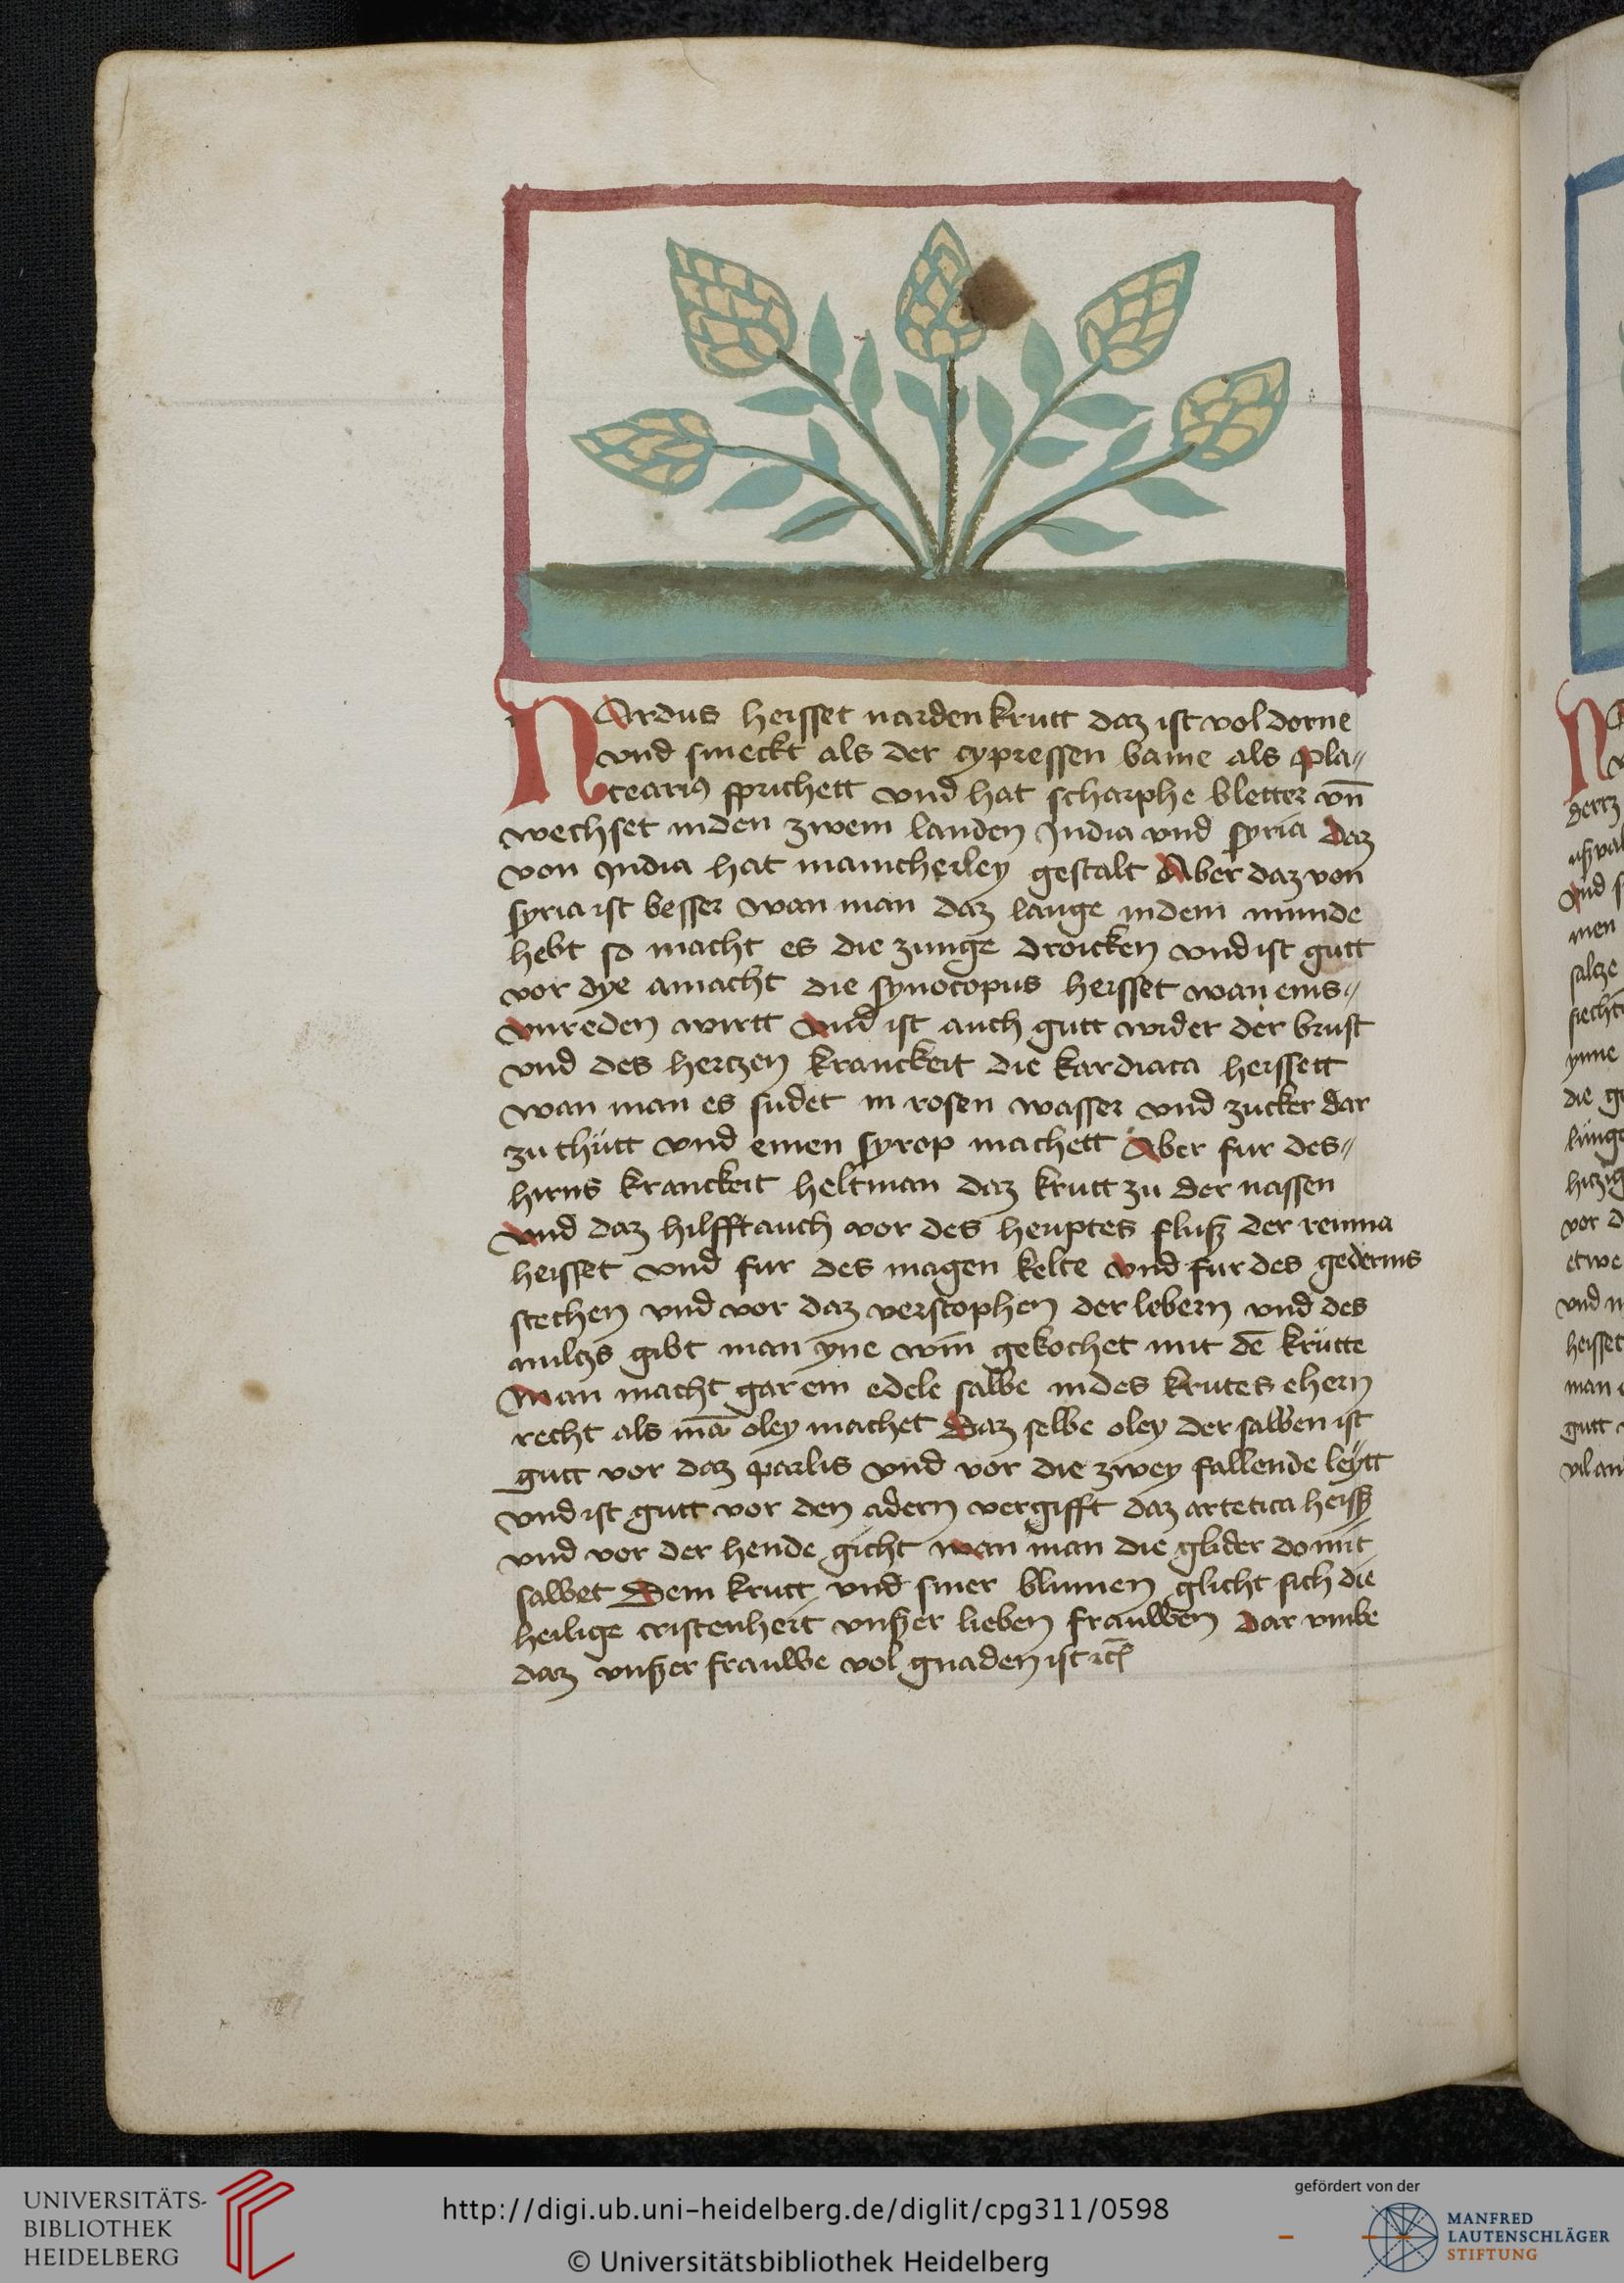 NArdus heisset nardenkrutt daz ist vol dorne
vnd smeckt als der cypressen bame als Pla〃
tearius sprichett vnd hat scharphe bletter vn̄
wechset inden zwein landen India vnd syria Daz
von India hat mancherley gestalt Aber daz von
syria ist besser wan man daz lange indem munde
hebt so macht es die zunge droicken vnd ist gutt
vor dye amacht die synocopus heisset wan eins〃
vnreden wirtt Vnd ist auch gutt wider der brust
vnd des hertzen kranckeit die kardiaca heissett
wan man es sudet in rosen wasser vnd zucker dar
zu thůtt vnd einen syrop machett Aber fur des〃
hirns kranckeit heltman daz krutt zu der nassen
Vnd daz hilfft auch vor des heuptes flusz der reuma
heisset vnd fur des magen kelte Vnd fur des gederms
stechen vnd vor daz verstophen der lebern vnd des
milczs gibt man yne win gekochet mit dē krůtte
Man macht gar ein edele salbe indes krutes ehern
recht als mā oley machet Daz selbe oley der salben ist
gutt vor daz parlis vnd vor die zwey fallende leÿtt
vnd ist gutt vor den adern vergifft daz artetica heisz
vnd vor der hende gicht wan man die glider do mit
salbet Dem krutt vnd siner blumen glicht sich die
heilige cristenheit vnszer lieben frauwen Dar vmbe
daz vnszer frauwe vol gnaden ist ꝛc̄
UNIVERSITÄTS-
BIBLIOTHEK
HEIDELBERG
http://digi.ub.uni-heidelberg.de/diglit/cpg311/0598
© Universitätsbibliothek Heidelberg
gefördert von der
MANFRED
LAUTENSCHLÄGER
STIFTUNG